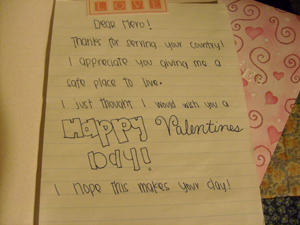 LOVE
Dear Hero!
Thanks for serving your country!
I appreciate you giving me a
safe place to live.
I just thought I would wish you a
Happy Valentines
Day!
I hope this makes your day!